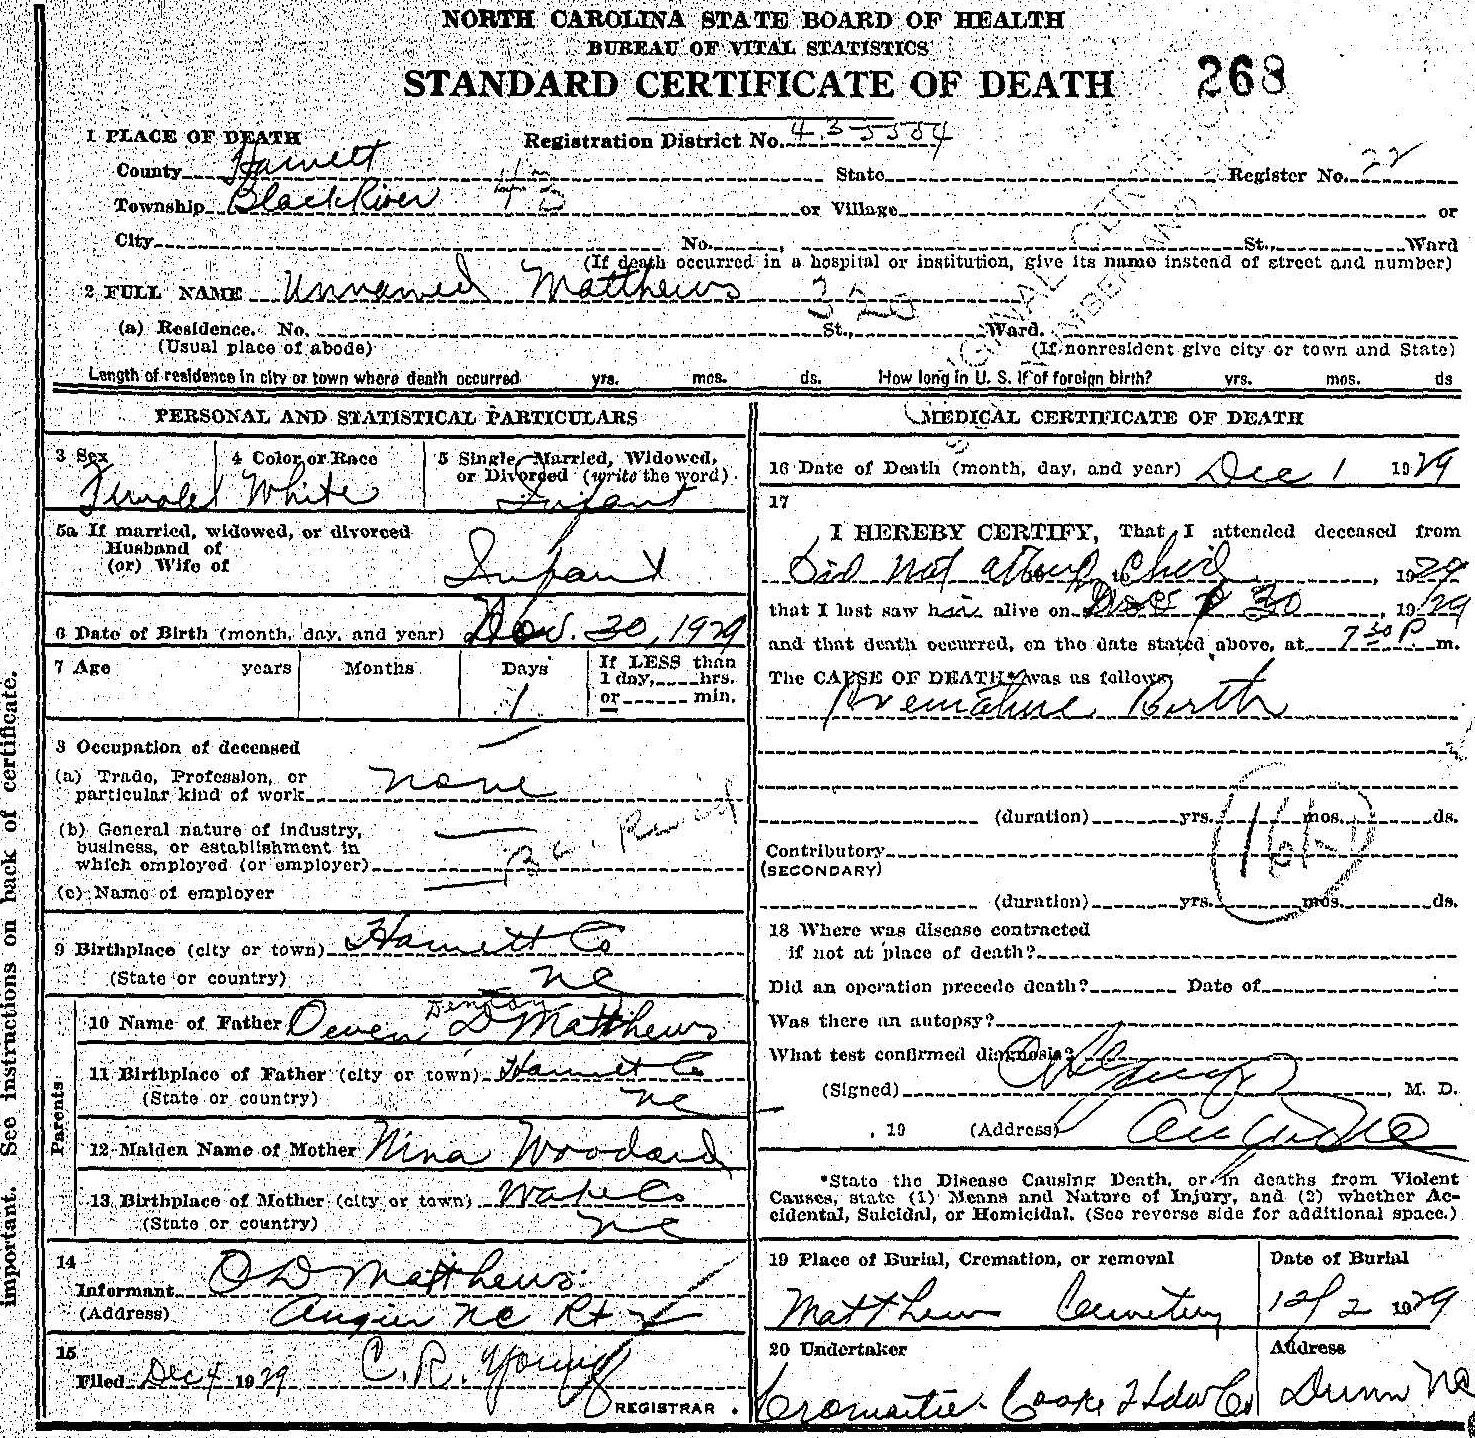 NORTH CAROLINA STATE BOARD OF HEALTH
BUREAU OF VITAL STATISTICS
STANDARD CERTIFICATE OF DEATH 268
1 PLACE OF DEATH Registration District No. 43-5504
County Harnett State Register No. 22
Township Black River or Village or
City No. , St., Ward
(If death occurred in a hospital or institution, give its name instead of street and number)
2 FULL NAME Unnamed Matthews 320
(a) Residence. No. St., Ward.
(Usual place of abode) (If nonresident give city or town and State)
Length of residence in city or town where death occurred yrs. mos. ds. How long in U. S. if of foreign birth? yrs. mos. ds
PERSONAL AND STATISTICAL PARTICULARS
3 Sex 4 Color or Race 5 Single, Married, Widowed,
or Divorced (write the word)
Female White Infant
5a If married, widowed, or divorced
Husband of
(or) Wife of Infant
6 Date of Birth (month, day, and year) Nov. 30, 1929
7 Age years Months Days If LESS than
1 day, hrs.
1 or min.
8 Occupation of deceased
(a) Trade, Profession, or
particular kind of work none
(b) General nature of industry,
business, or establishment in
which employed (or employer)
(c) Name of employer
9 Birthplace (city or town) Harnett Co
(State or country) NC
Parents
10 Name of Father Owen D Matthews
11 Birthplace of Father (city or town) Harnett Co
(State or country) NC
12 Maiden Name of Mother Nina Woodard
13 Birthplace of Mother (city or town) Wake Co
(State or country) NC
14
Informant O D Matthews
(Address) Angier NC Rt
15
Filed Dec 4 1929 C. R. Young
REGISTRAR.
MEDICAL CERTIFICATE OF DEATH
16 Date of Death (month, day, and year) Dec 1 1929
17
I HEREBY CERTIFY, That I attended deceased from
Did not attend child, 1929
that I last saw h alive on 30, 1929
and that death occurred, on the date stated above, at 7 30 P m.
The CAUSE OF DEATH* was as follows:
Premature Birth
(duration) yrs. mos. ds.
Contributory
(SECONDARY)
(duration) yrs. mos. ds.
18 Where was disease contracted
if not at place of death?
Did an operation precede death? Date of
Was there an autopsy?
What test confirmed diagnosis?
(Signed) Young, M. D.
, 19 (Address) Angier NC
*State the Disease Causing Death, or in deaths from Violent
Causes, state (1) Means and Nature of Injury, and (2) whether Ac-
cidental, Suicidal, or Homicidal. (See reverse side for additional space.)
19 Place of Burial, Cremation, or removal Date of Burial
Matthews Cemetery 12/2 1929
20 Undertaker Address
Cromartie Cooke Hdw Co Dunn NC
important. See instructions on back of certificate.